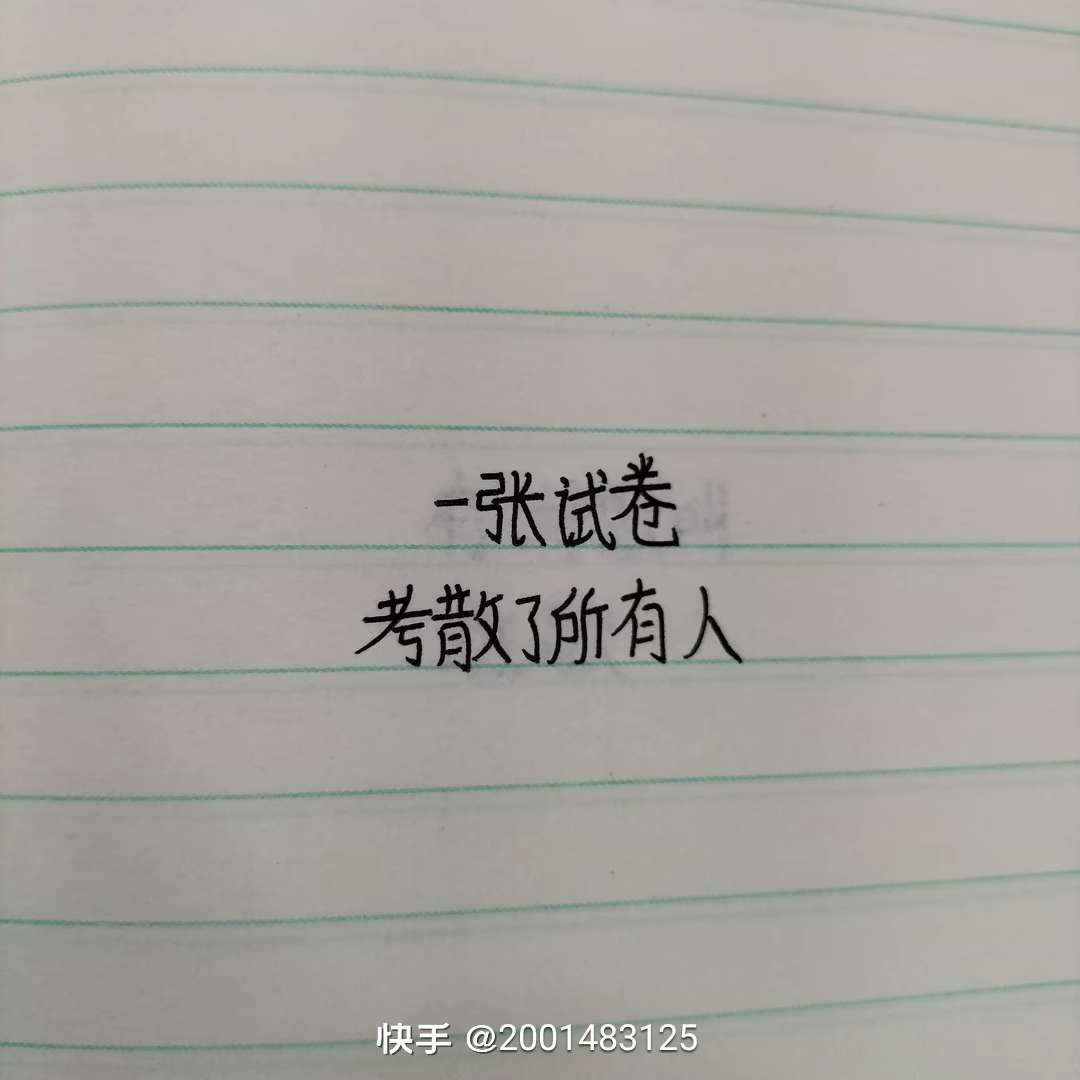 一张试卷
考散了所有人
快手 @2001483125